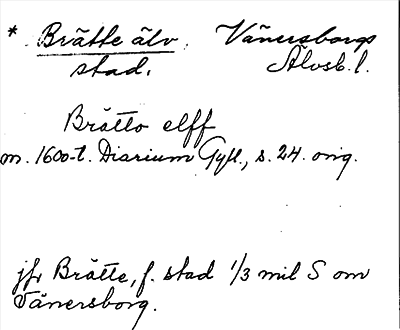 * Brätte älv. Vänersborgs
stad. Älvsb. l.
Brätto elff
m. 1600-t. Diarium Gyll., s. 24. orig.
jfr Brätte, f. stad 1/3 mil S om
Vänersborg.